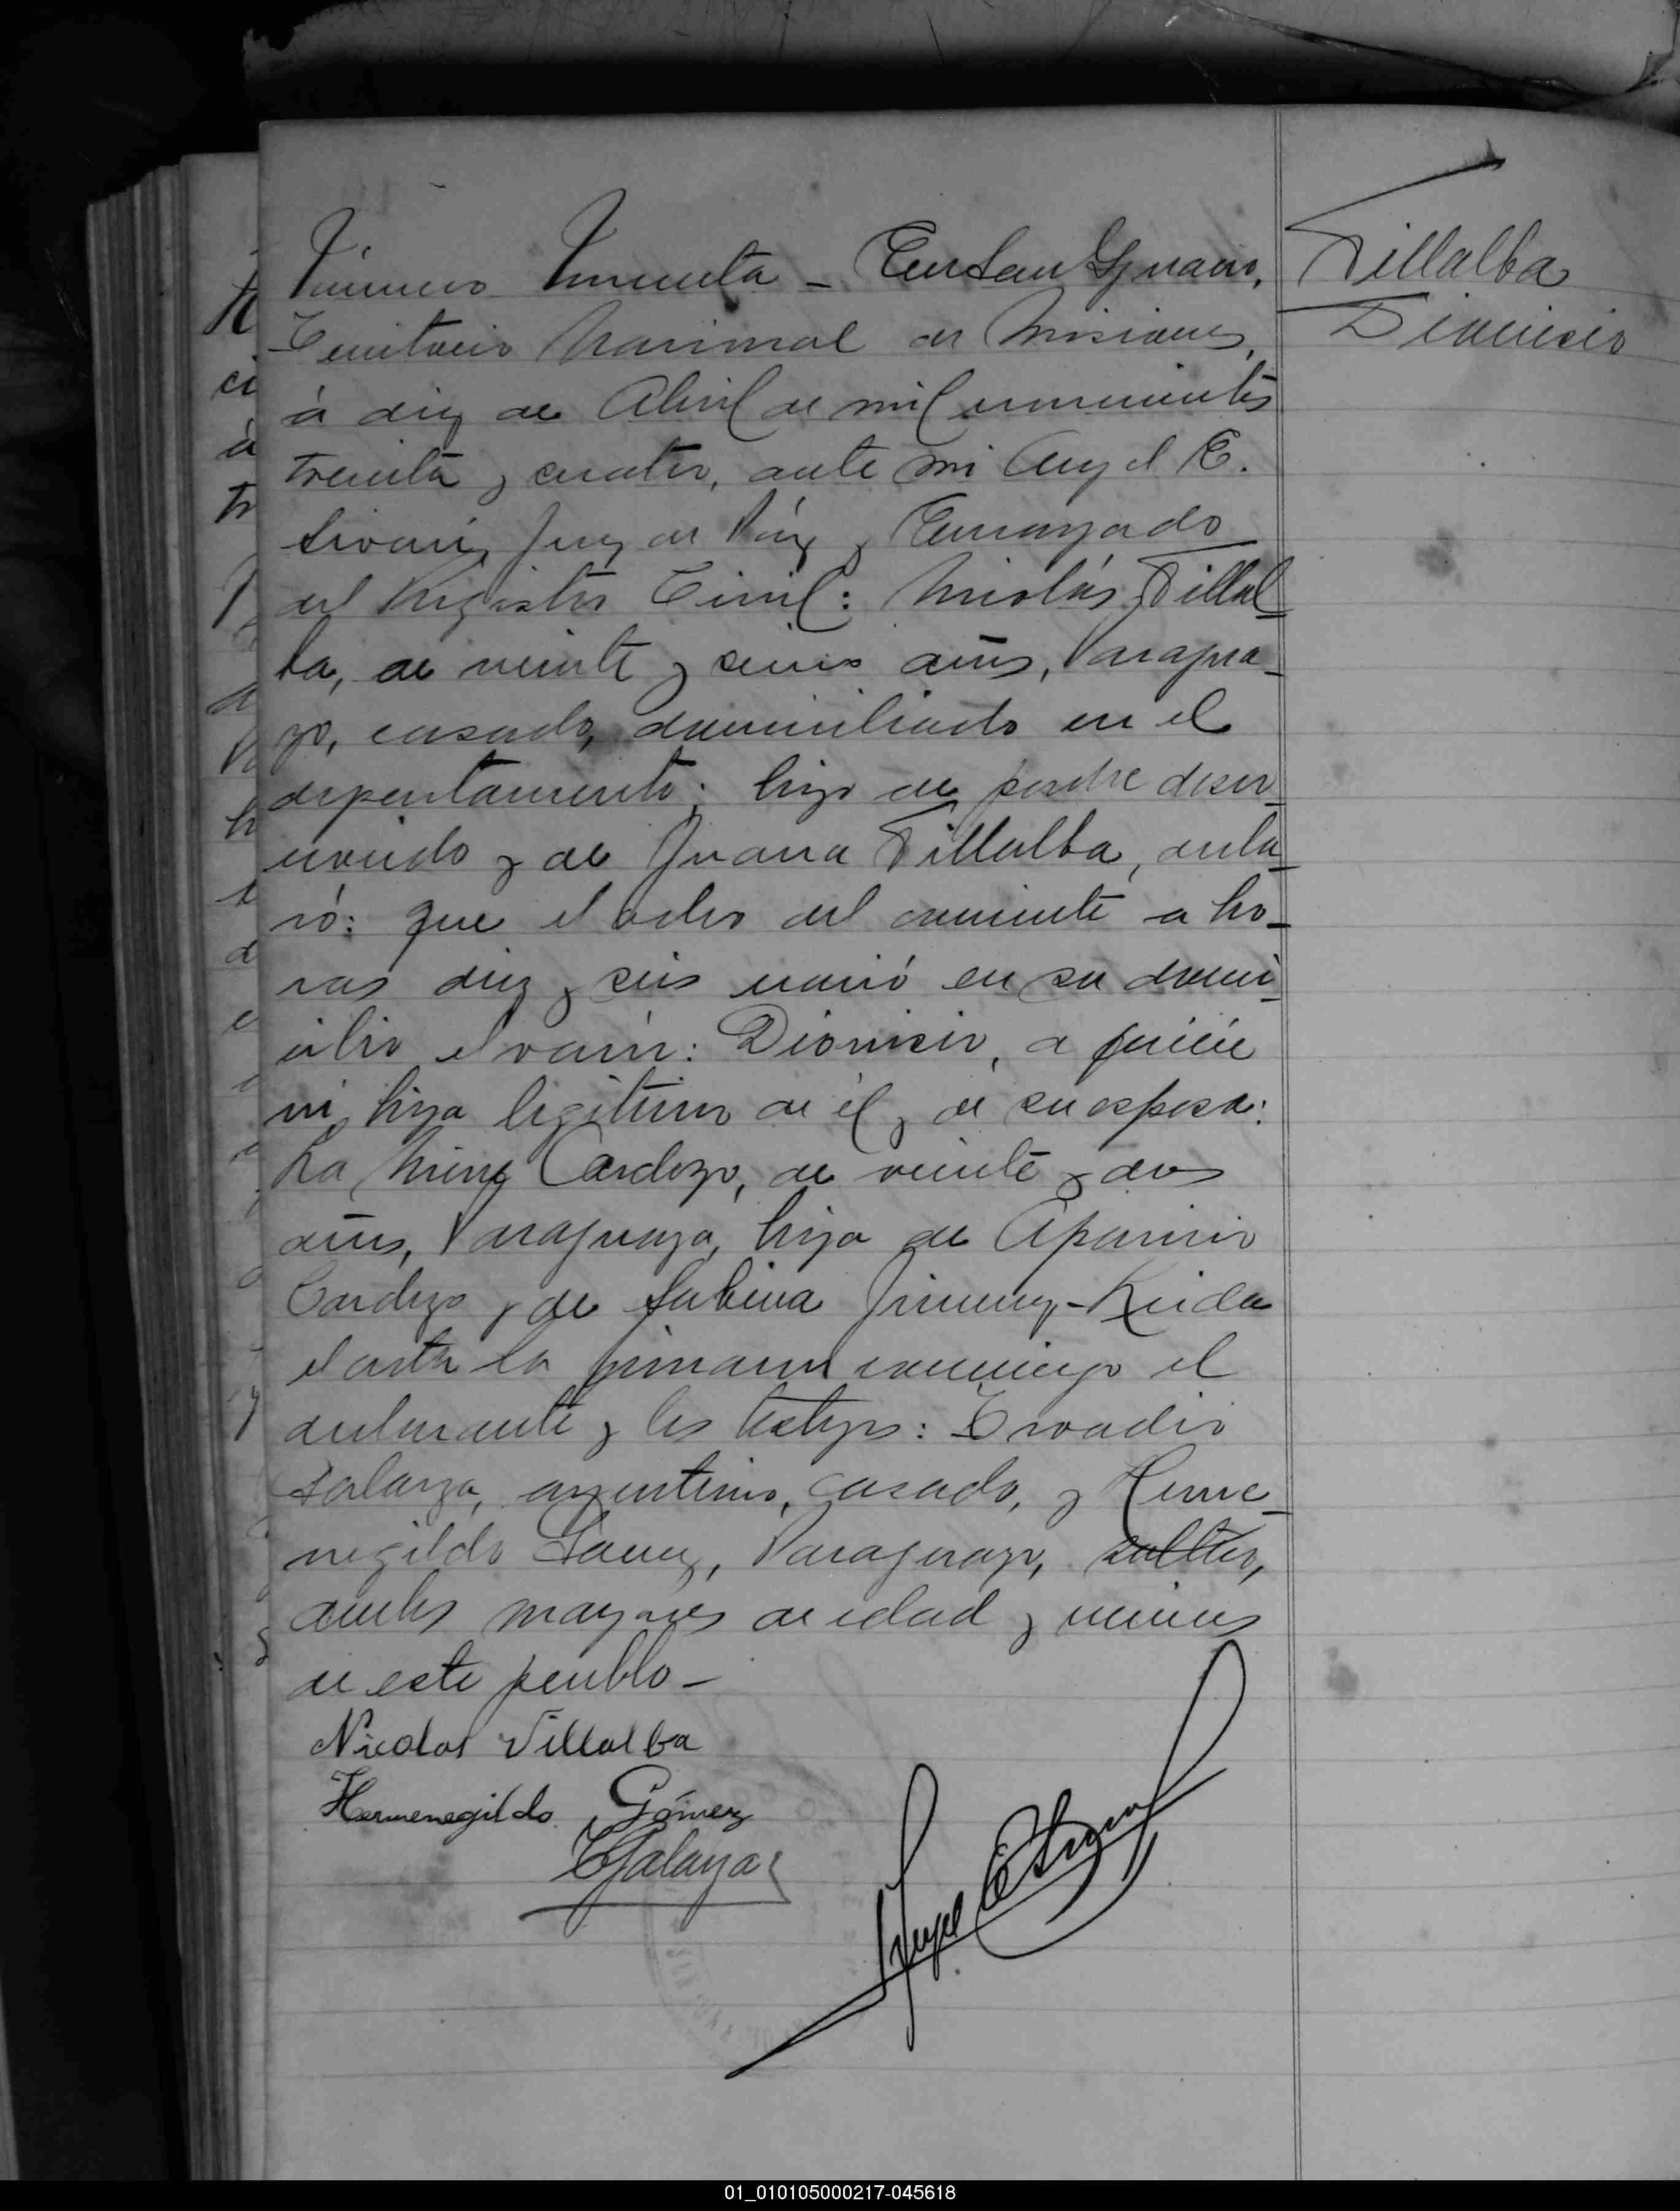 Villalba
Dionicio
Número Noventa - En San Ygnacio,
Territorio Nacional de Misiones,
á diez de Abril de mil novecientos
treinta y cuatro, ante mi Angel E.
Juez de Páz y Encargado
del Registro Civil: Nicolás Villal-
ba, de veinte y cinco años, Paragua-
yo, casado, domiciliado en el
departamento; hijo de padre desco-
nocido y de Juana Villalba, decla-
ró: que el ocho del corriente a ho-
ras diez y seis nació en su domi-
cilio el varón: Dionicio, a quien
ví, hijo legítimo de él y de su esposa:
Cardozo, de veinte y dos
años, Paraguaya, hija de Aparicio
Cardozo y de Sabina Jimenez - Leida
el acta la firmaron conmigo el
declarante y los testigos:
Galarza, argentino, casado, y Herme-
negildo Gomez, Paraguayo, soltero,
ambos mayores de edad y vecinos
de este pueblo -
Nicolas Villalba
Hermenegildo Gómez
Galarza
Angel E
01_010105000217-045618